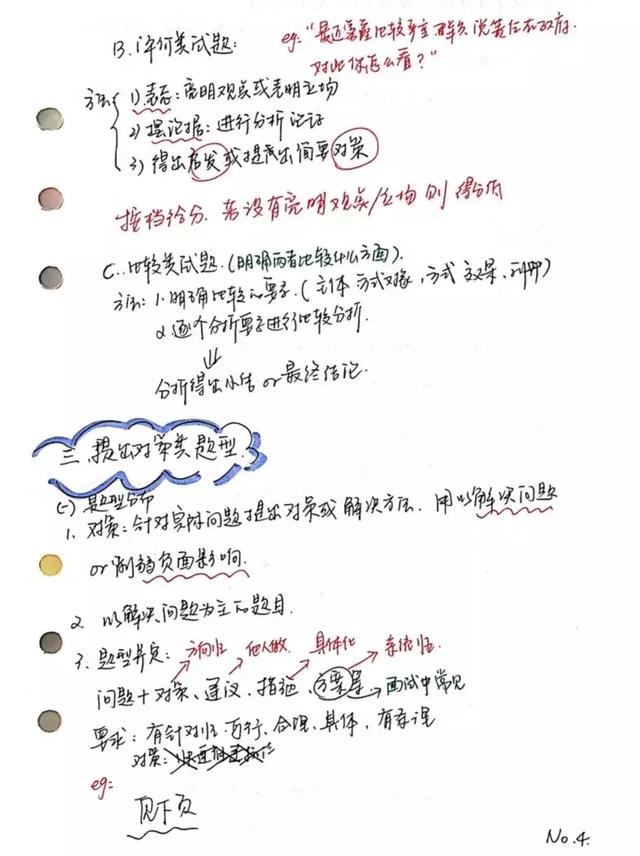 B.评价类试题:
eg:"最近雾霾比较严重 群众说责任在政府.
对此你怎么看?"
方法
1)表态:亮明观点或表明立场
2)摆论据:进行分析论证
3)得出启发或提出简要对策
按档给分.若没有亮明观点/立场 则 得分低
C.比较类试题.(明确两者比较什么方面).
方法:1.明确比较的要素.(主体 方式对象,方式 效果,
2.逐个分析要素进行比较分析.
分析得出小结 or 最终结论.
三.提出对策类题型.
(一)题型分布
1.对策:针对实际问题提出对策或解决方法.用以解决问题
or 消除负面影响.
2.以解决问题为主的题目.
方向性 他人做. 具体化 系统性.
3.题型异麂:
问题+对策、建议、措施、方案等→面试中常见
要求:有针对性.可行、合理、具体、有条理
对策:
eg:
见下页
No.4.